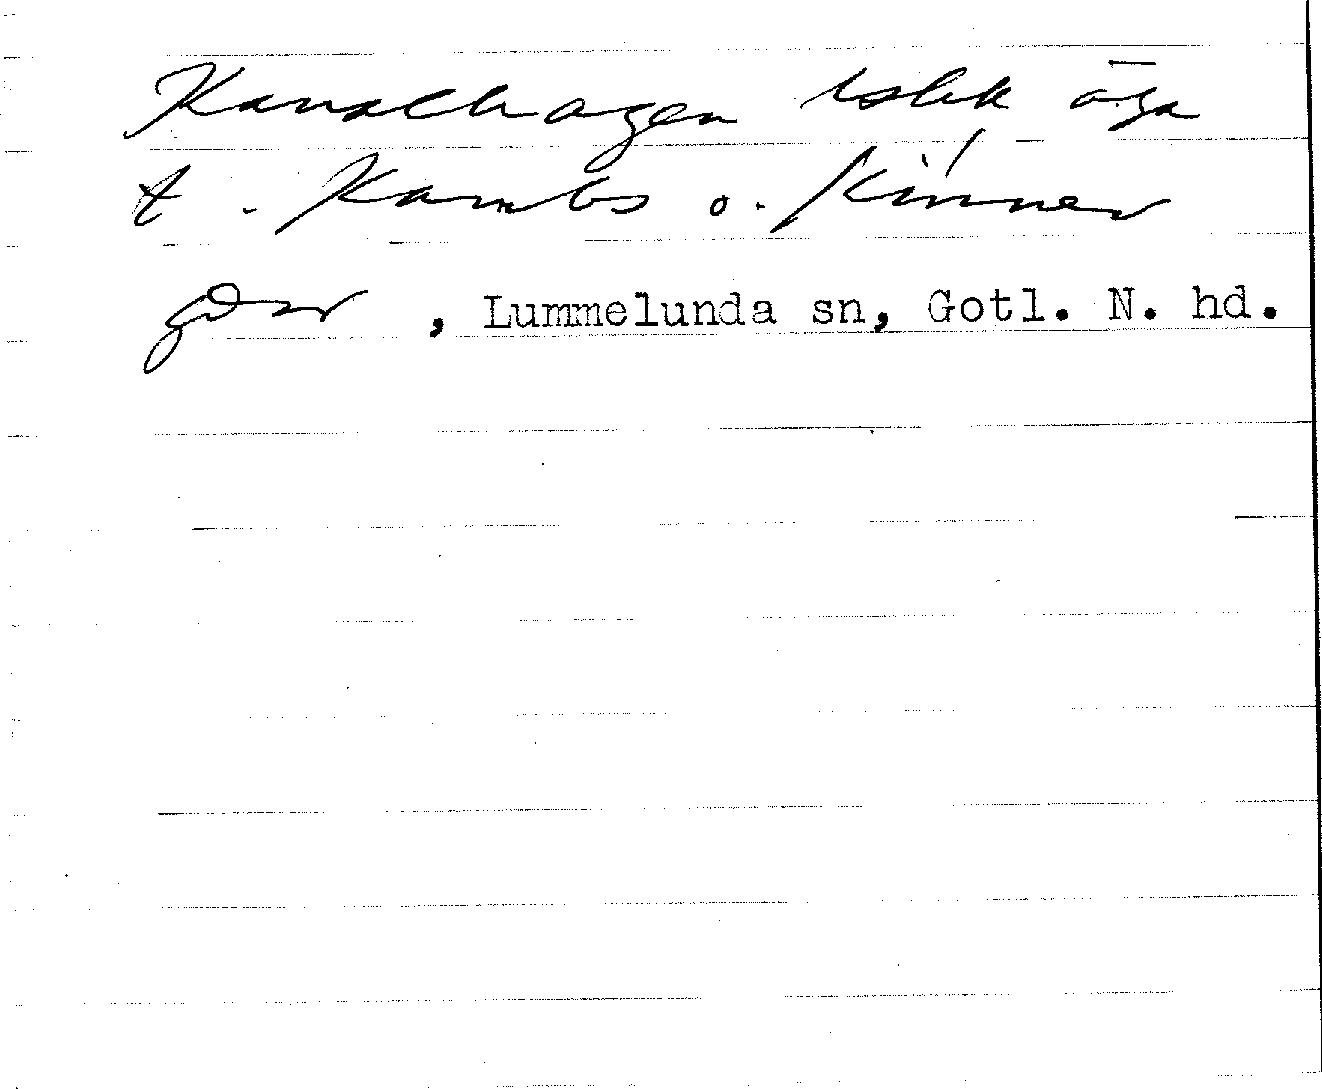 Kanalhagen
t. Kambs o. Kinner
gdar, Lummelunda sn, Gotl. N. hd.